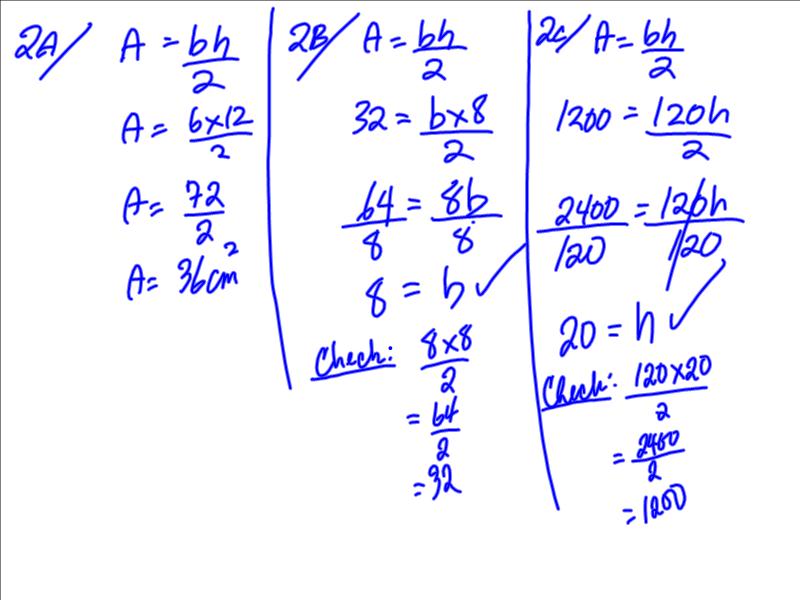 2A/ A = bh/2
A = 6x12/2
A = 72/2
A = 36cm²
2B/ A = bh/2
32 = bx8/2
64/8 = 8b/8
8 = b ✓
Check: 8x8/2
= 64/2
= 32
2C/ A = bh/2
1200 = 120h/2
2400/120 = 120h/120
20 = h ✓
Check: 120x20/2
= 2400/2
= 1200